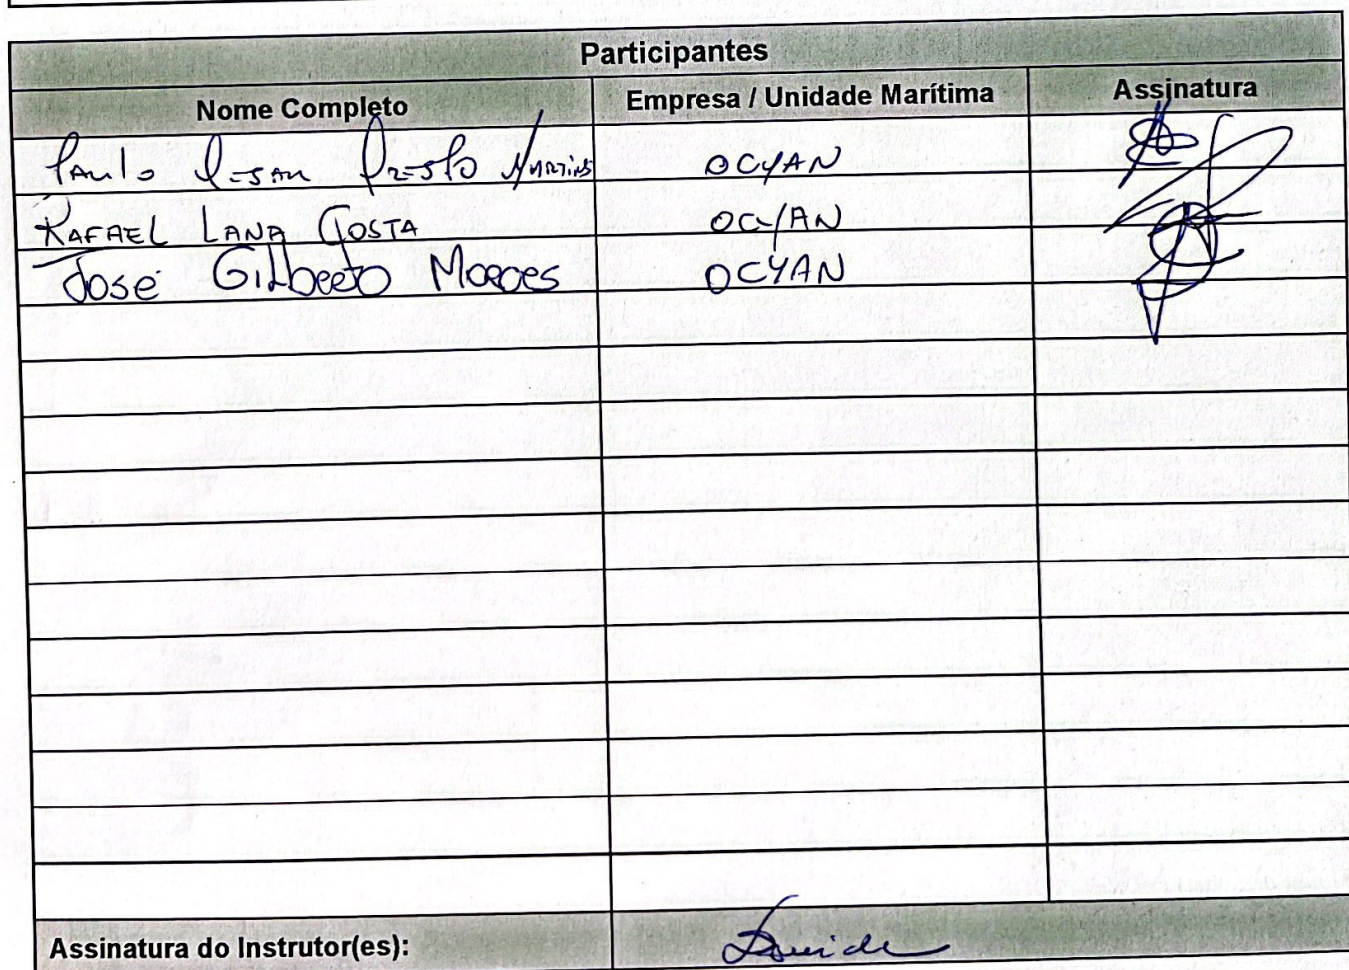 Participantes
Nome Completo Empresa / Unidade Marítima Assinatura
Paulo Cesar Martins OCYAN
RAFAEL LANA COSTA OCYAN
José Gilberto Moraes OCYAN
Assinatura do Instrutor(es):